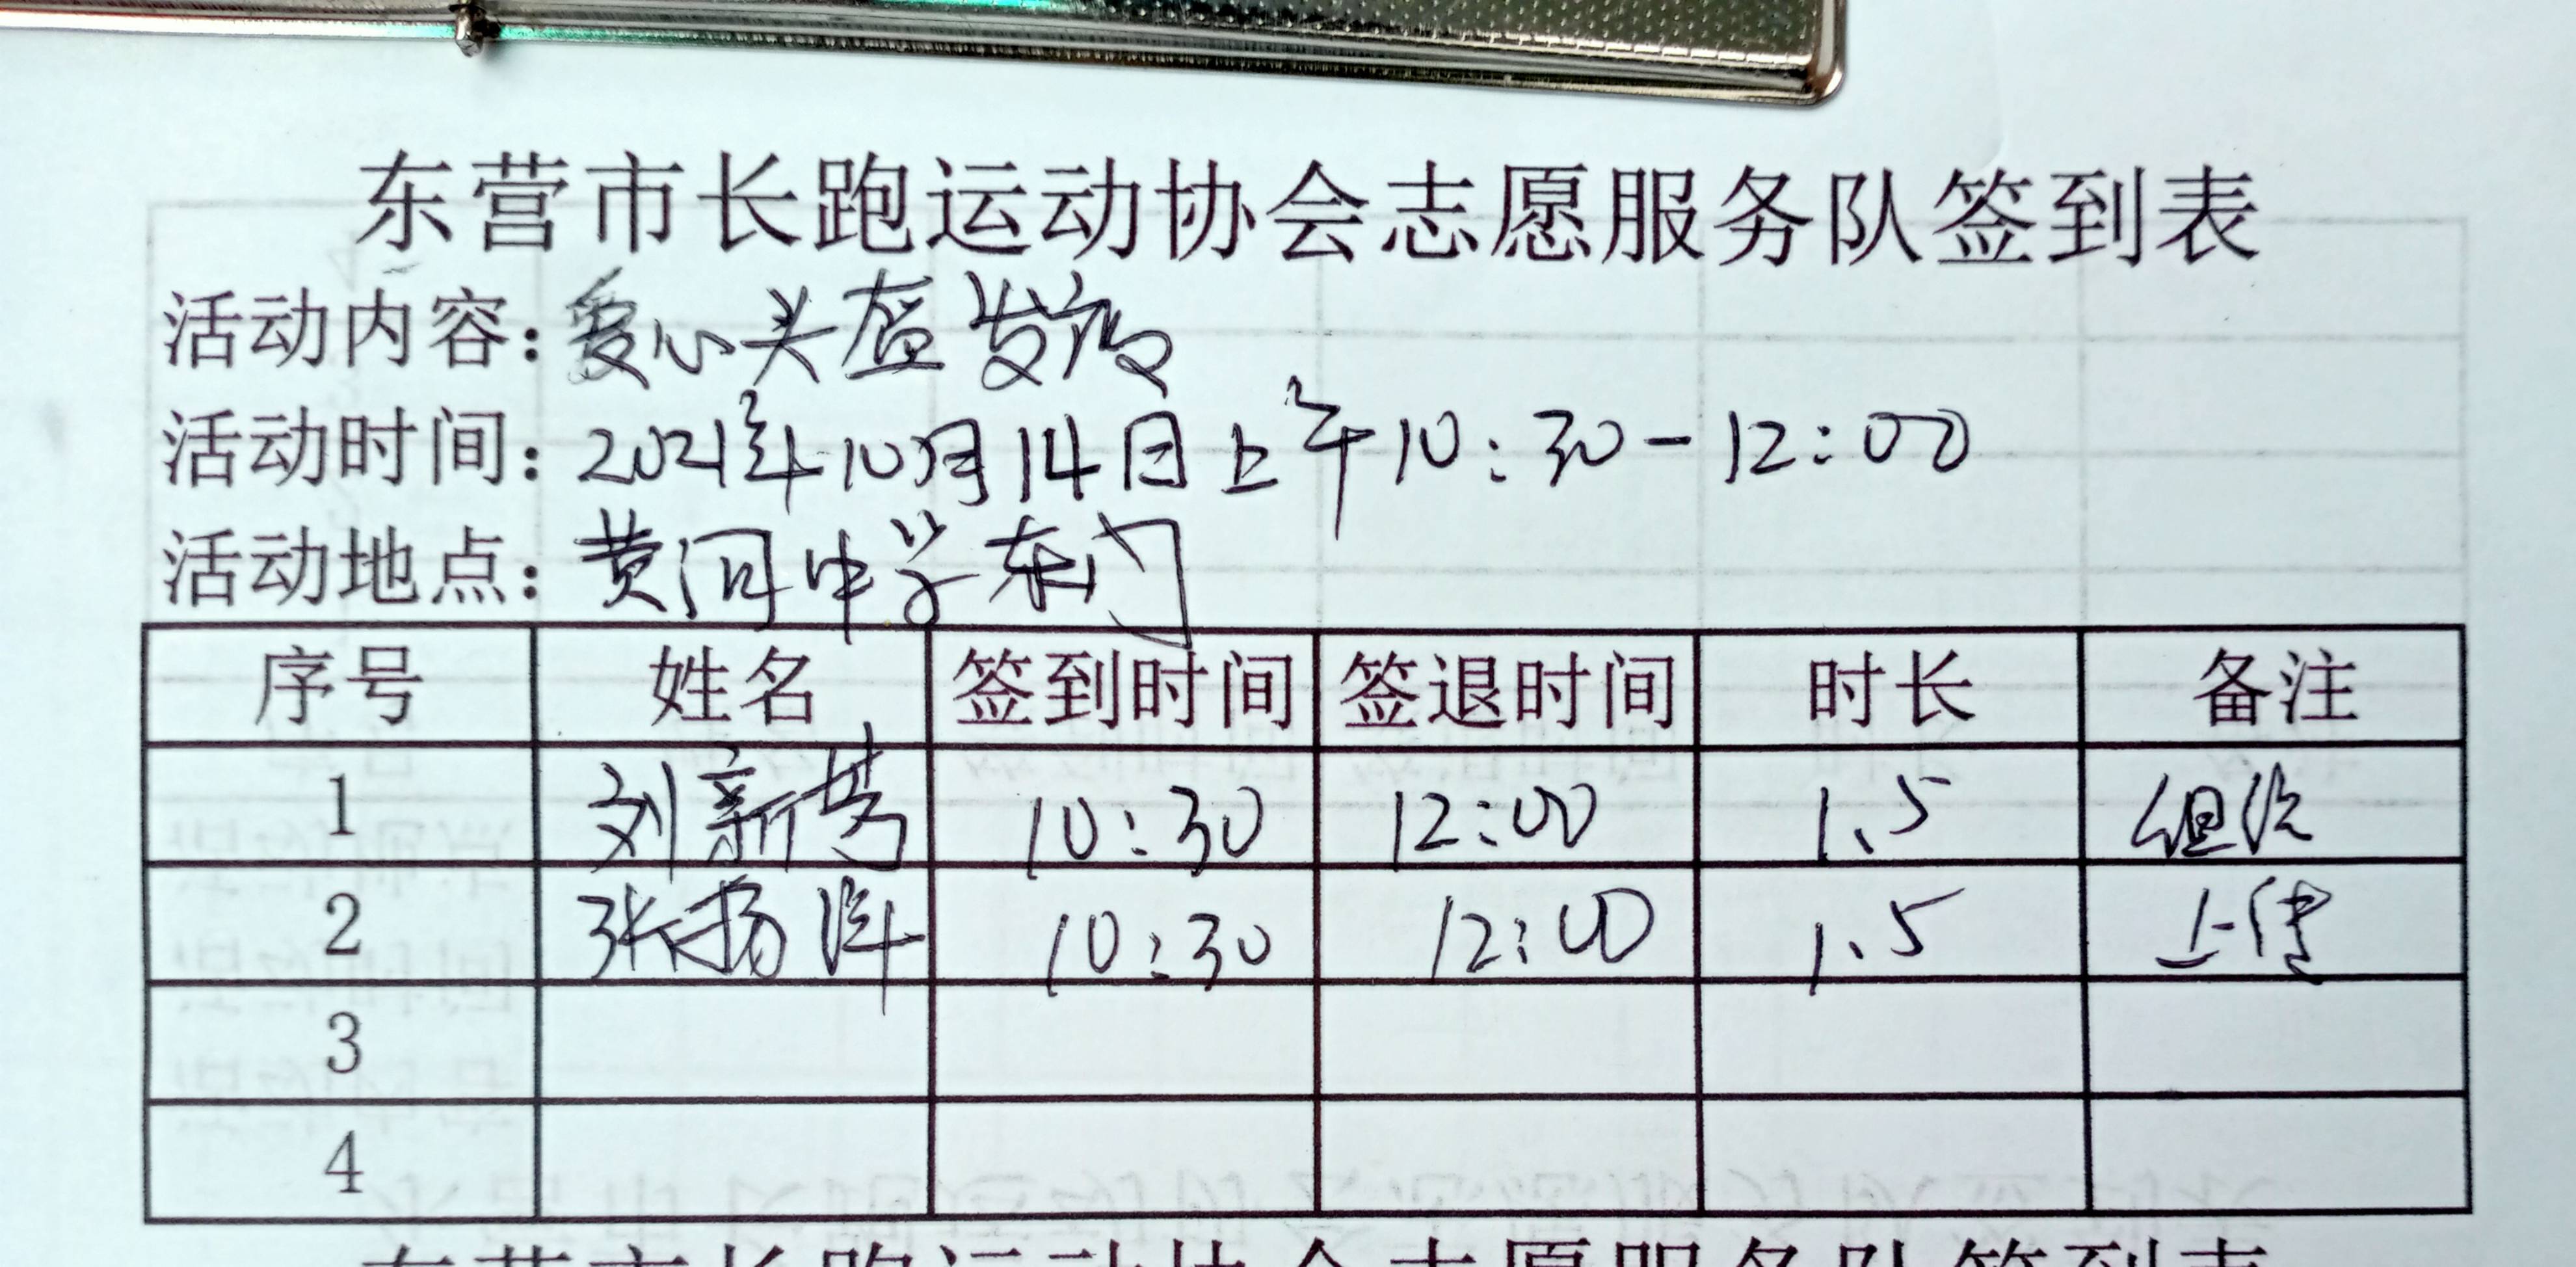 东营市长跑运动协会志愿服务队签到表
活动内容：爱心头盔发放
活动时间：2021年10月14日上午10:30-12:00
活动地点：黄河中学东门
序号 姓名 签到时间 签退时间 时长 备注
1 刘新芳 10:30 12:00 1.5
2 张扬 10:30 12:00 1.5 上传
3
4
东营市长跑运动协会志愿服务队签到表